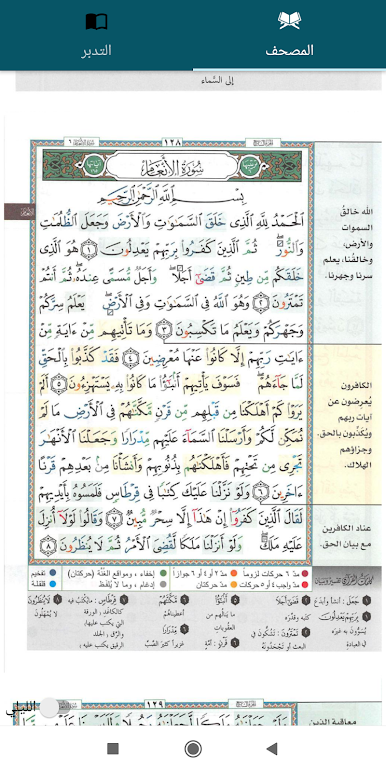 المصحف
التدبر
إلى السَّماء
١٢٨
سُورَةُ الأَنْعَامِ
بِسْمِ اللَّهِ الرَّحْمَٰنِ الرَّحِيمِ
الْحَمْدُ لِلَّهِ الَّذِي خَلَقَ السَّمَاوَاتِ وَالْأَرْضَ وَجَعَلَ الظُّلُمَاتِ
وَالنُّورَ ۖ ثُمَّ الَّذِينَ كَفَرُوا بِرَبِّهِمْ يَعْدِلُونَ ١ هُوَ الَّذِي
خَلَقَكُم مِّن طِينٍ ثُمَّ قَضَىٰ أَجَلًا ۖ وَأَجَلٌ مُّسَمًّى عِندَهُ ۖ ثُمَّ أَنتُمْ
تَمْتَرُونَ ٢ وَهُوَ اللَّهُ فِي السَّمَاوَاتِ وَفِي الْأَرْضِ ۖ يَعْلَمُ سِرَّكُمْ
وَجَهْرَكُمْ وَيَعْلَمُ مَا تَكْسِبُونَ ٣ وَمَا تَأْتِيهِم مِّنْ آيَةٍ مِّنْ
آيَاتِ رَبِّهِمْ إِلَّا كَانُوا عَنْهَا مُعْرِضِينَ ٤ فَقَدْ كَذَّبُوا بِالْحَقِّ
لَمَّا جَاءَهُمْ ۖ فَسَوْفَ يَأْتِيهِمْ أَنبَاءُ مَا كَانُوا بِهِ يَسْتَهْزِئُونَ ٥ أَلَمْ
يَرَوْا كَمْ أَهْلَكْنَا مِن قَبْلِهِم مِّن قَرْنٍ مَّكَّنَّاهُمْ فِي الْأَرْضِ مَا لَمْ
نُمَكِّن لَّكُمْ وَأَرْسَلْنَا السَّمَاءَ عَلَيْهِم مِّدْرَارًا وَجَعَلْنَا الْأَنْهَارَ
تَجْرِي مِن تَحْتِهِمْ فَأَهْلَكْنَاهُم بِذُنُوبِهِمْ وَأَنشَأْنَا مِن بَعْدِهِمْ قَرْنًا
آخَرِينَ ٦ وَلَوْ نَزَّلْنَا عَلَيْكَ كِتَابًا فِي قِرْطَاسٍ فَلَمَسُوهُ بِأَيْدِيهِمْ
لَقَالَ الَّذِينَ كَفَرُوا إِنْ هَٰذَا إِلَّا سِحْرٌ مُّبِينٌ ٧ وَقَالُوا لَوْلَا أُنزِلَ
عَلَيْهِ مَلَكٌ ۖ وَلَوْ أَنزَلْنَا مَلَكًا لَّقُضِيَ الْأَمْرُ ثُمَّ لَا يُنظَرُونَ ٨
الله خالقُ
السموات
والأرض،
وخالقُنا، يعلم
سرنا وجهرنا.
الكافرون
يُعرضون عن
آيات ربهم
ويُكذّبون بالحق،
وجزاؤهم
الهلاك.
عناد الكافرين
مع بيان الحق.
مدّ ٦ حركات لزوماً
مدّ ٢ أو ٤ أو ٦ جوازاً
إخفاء، ومواقع الغُنَّة (حركتان)
تفخيم
مدّ واجب ٤ أو ٥ حركات
مدّ حركتان
إدغام، وما لا يُلفَظ
قلقلة
الليلي
١٢٩
معاقبة الذين